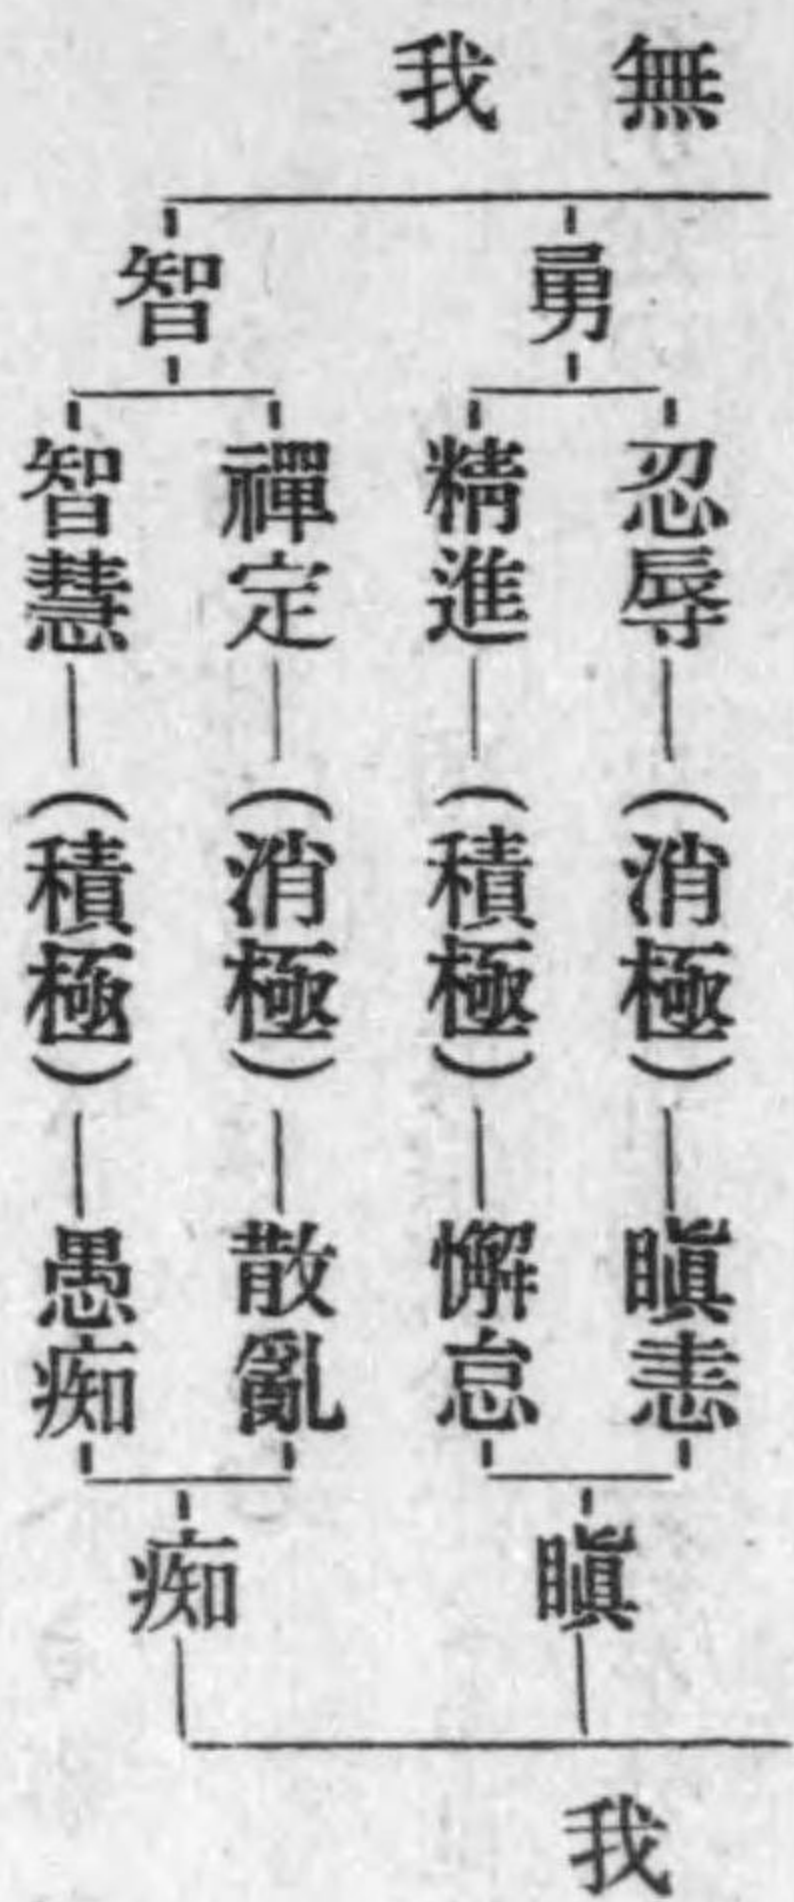 無我
勇
智
忍辱―(消極)―瞋恚
精進―(積極)―懈怠
禪定―(消極)―散亂
智慧―(積極)―愚痴
瞋
痴
我